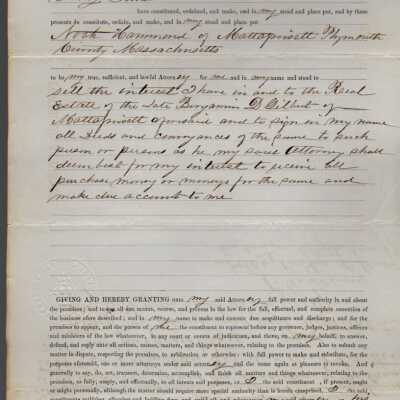 have constituted, ordained, and made, and in my stead and place put, and by these
presents do constitute, ordain, and make, and in my stead and place put
Noah Hammond of Mattapoisett Plymouth
County Massachusetts
to be my true, sufficient, and lawful Attorney for me and in my name and stead to
sell the interest I have in and to the Real
Estate of the late Benjamin D
Mattapoisett aforesaid and to sign in my name
all Deeds and conveyances of the same to such
person or persons as he my said Attorney shall
deem best for my interest to receive all
purchase money or moneys for the same and
make due account to me
GIVING AND HEREBY GRANTING unto my said Attorney full power and authority in and about
the premises; and to use all due means, course, and process in the law for the full, effectual, and complete execution of
the business afore described; and in my name to make and execute due acquittance and discharge; and for the
premises to appear, and the person of me the constituent to represent before any governor, judges, justices, officers
and ministers of the law whatsoever, in any court or courts of judicature, and there, on my behalf, to answer,
defend, and reply unto all actions, causes, matters, and things whatsoever, relating to the premises. Also to submit any
matter in dispute, respecting the premises, to arbitration or otherwise: with full power to make and substitute, for the
purposes aforesaid, one or more attorneys under said attorney and the same again at pleasure to revoke. And
generally to say, do, act, transact, determine, accomplish, and finish all matters and things whatsoever, relating to the
premises, as fully, amply, and effectually, to all intents and purposes, as I, the said constituent, if present, ought
or might personally, although the matter should require more special authority than is herein comprised, I the said